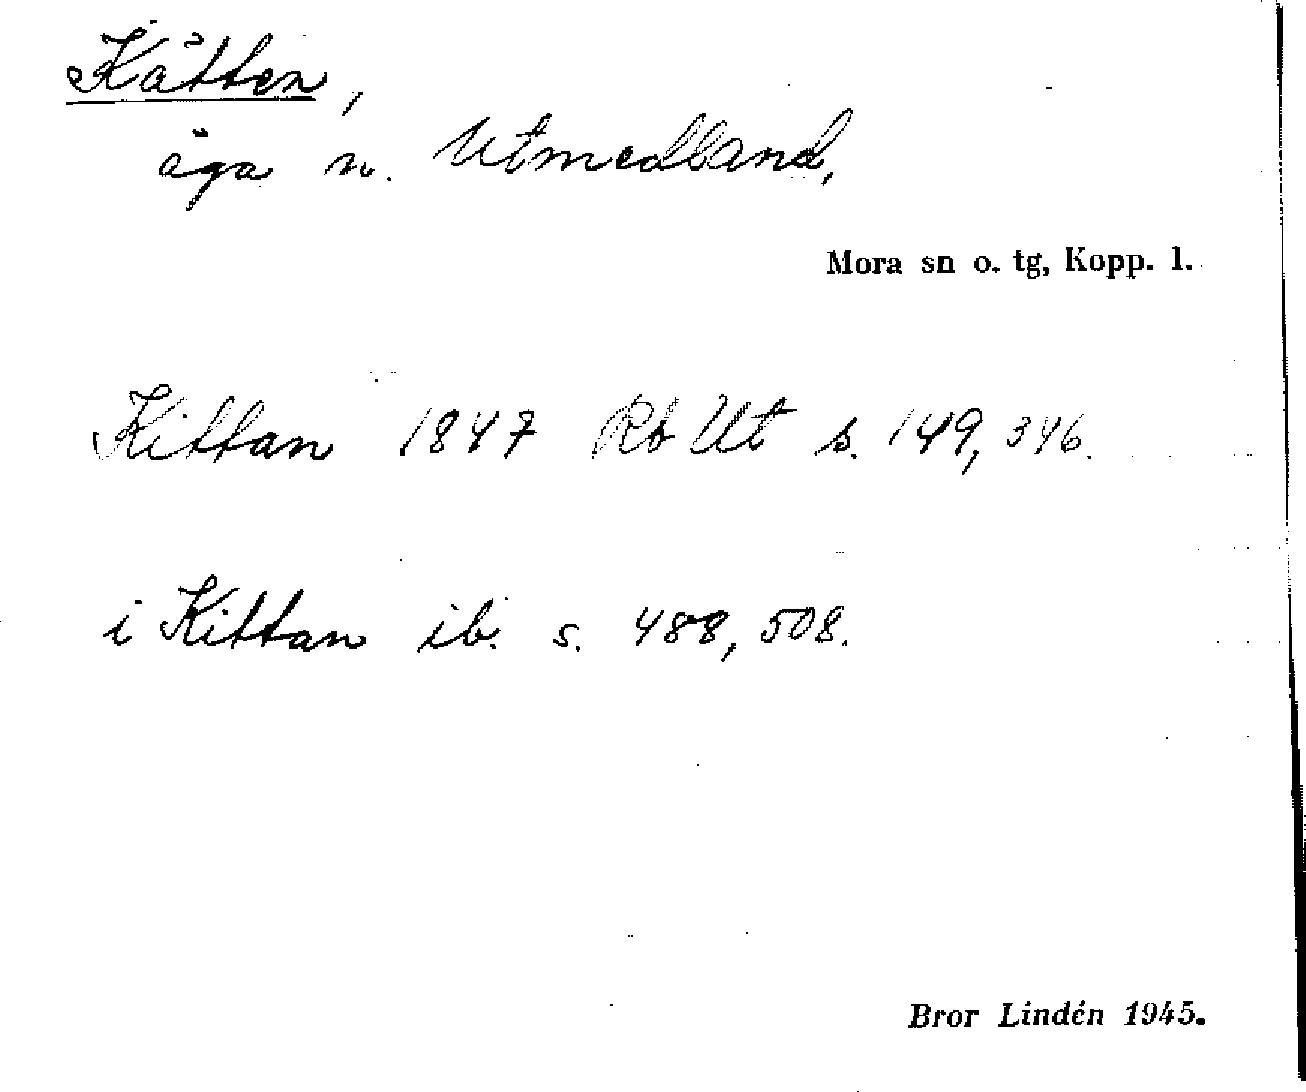 Kätten,
äga n. Utmedland,
Mora sn o. tg, Kopp. l.
Kittan 1847 Rb Ut s. 149, 346.
i Kittan ib. s. 488, 508.
Bror Lindén 1945.